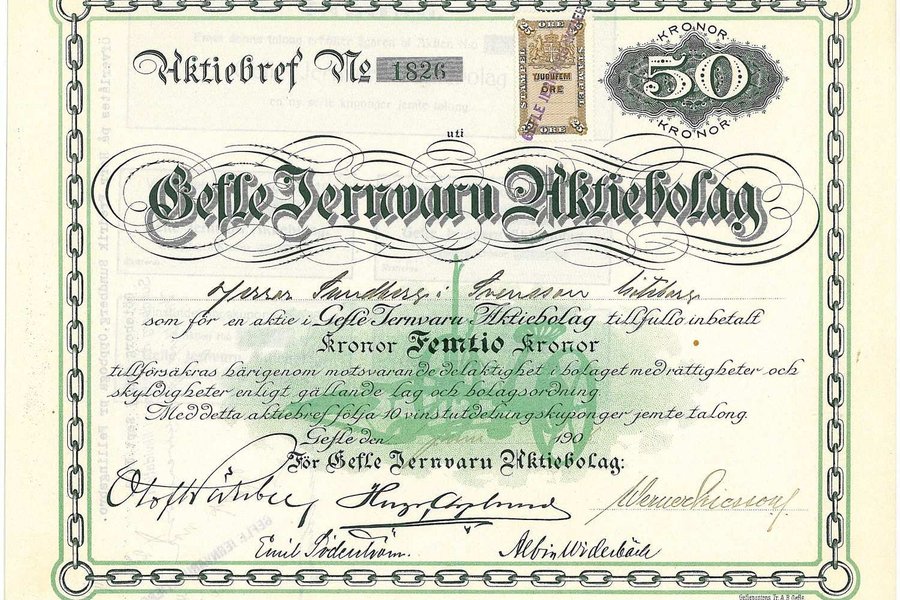 Aktiebref No 1826
ÖRE
TJUGUFEM
ÖRE
ÖRE
KRONOR
50
KRONOR
uti
Gefle Jernvaru Aktiebolag
Herrar Sundberg i Svensson
som för en aktie i Gefle Jernvaru-Aktiebolag till fullo inbetalt
Kronor Femtio Kronor
tillförsäkras härigenom motsvarande delaktighet i bolaget med rättigheter och
skyldigheter enligt gällande lag och bolagsordning.
Med detta aktiebref följa 10 vinstutdelningskuponger jemte talong.
Gefle den juni 190
För Gefle Jernvaru Aktiebolag:
Werner Ericsson
Emil Söderström. Albin Widerbäck